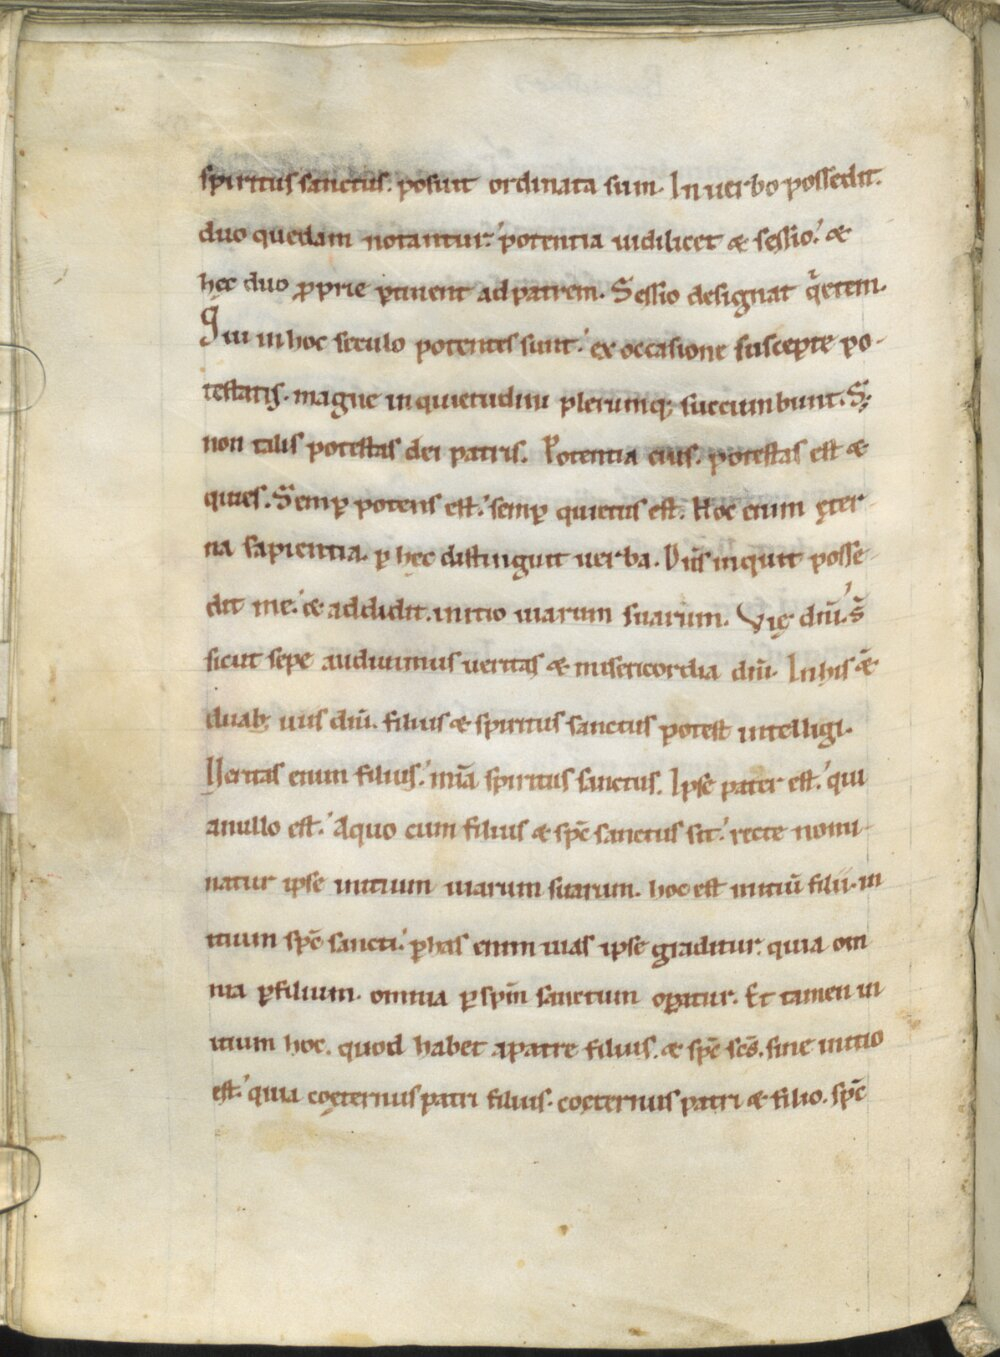 spiritus sanctus. posuit ordinata sum. In uerbo possedit.
duo quedam notantur:' potentia uidilicet & sessio.' &
hęc duo ꝓprie ꝑtinent ad patrem. Sessio designat q̇etem.
Qui in hoc seculo potentes sunt.' ex occasione suscepte po-
testatis. magne inquietudini plerumq; succumbunt. S;
non talis potestas dei patris. Potentia eius. potestas est &
quies. Semꝑ potens est.' semꝑ quietus est. Hoc enim ęter-
na sapientia. ꝑ hęc distinguit uerba. Dn̄s inquit posse-
dit me.' & addidit. initio uiarum suarum. Vię dn̄i.' s̄
sicut sepe audiuimus ueritas & misericordia dn̄i. In his &̄
duab; uiis dn̄i. filius & spiritus sanctus potest intelligi.
Veritas enim filius.' mīa spiritus sanctus. Ipse pater est.' qui
anullo est.' Aquo cum filius & spc̄ sanctus sit.' recte nomi-
natur ipse initium uiarum suarum. hoc est initiū filii. in
itium spc̄ sancti.' ꝑ has enim uias ipse graditur. quia om
nia ꝑ filium. omnia ꝑ spm̄ sanctum oꝑatur. Et tamen in
itium hoc. quod habet apatre filius. & spc̄ scs̄. sine initio
est.' quia coęternus patri filius. coęternus patri & filio. spc̄